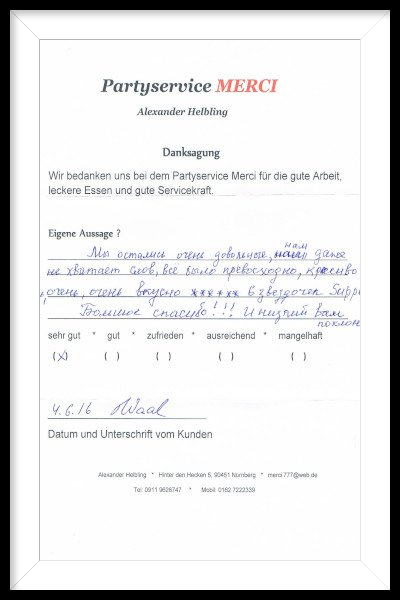 Partyservice MERCI
Alexander Helbling
Danksagung
Wir bedanken uns bei dem Partyservice Merci für die gute Arbeit,
leckere Essen und gute Servicekraft.
Eigene Aussage ?
Мы остались очень довольные, нам даже
не хватает слов, все было превосходно, красиво
, очень, очень вкусно ****** 6 звездочек Supper
Большое спасибо!!! И низкий вам
поклон
sehr gut * gut * zufrieden * ausreichend * mangelhaft
(x) ( ) ( ) ( ) ( )
4.6.16
Datum und Unterschrift vom Kunden
Alexander Helbling * Hinter den Hecken 5, 90451 Nürnberg * merci.777@web.de
Tel: 0911 9626747 * Mobil: 0162 7222339